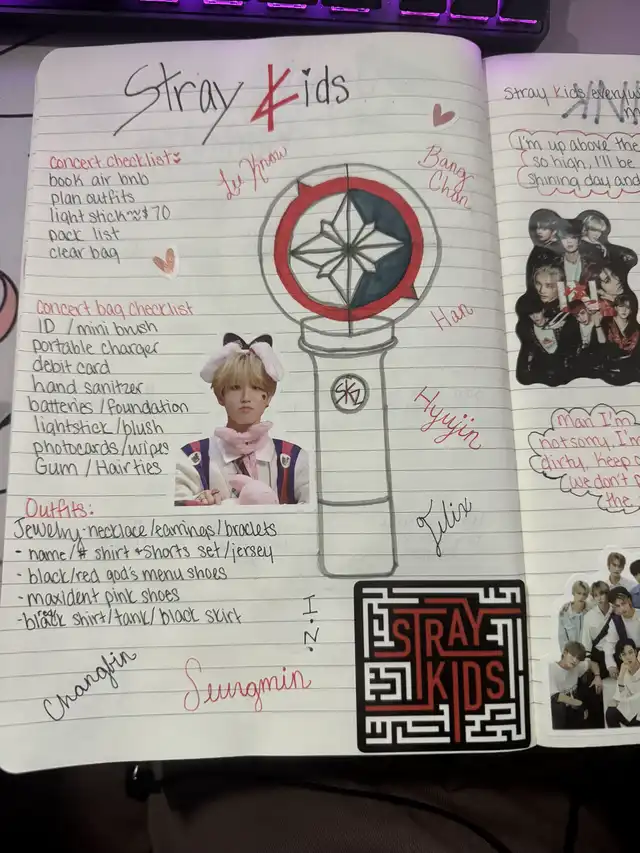 Stray Kids
concert checklist
book air bnb
plan outfits
light stick ~$70
pack list
clear bag
Lee Know
Bang
Chan
concert bag checklist
ID / mini brush
portable charger
debit card
hand sanitzer
batteries / foundation
lightstick / blush
photocards / wipes
Gum / Hairties
Han
SKZ
Hyujin
Felix
I.N.
Outfits:
Jewelry-necklace/earrings/braclets
- name/# shirt + shorts set/jersey
- black/red god's menu shoes
- maxident pink shoes
- black red shirt/tank/black skirt
Changbin
Seungmin
STRAY
KIDS
Stray Kids everyw
I'm up above the
so high, I'll be
shining day and
Man I'm
not sorry, I'm
dirty, keep o
we don't
the